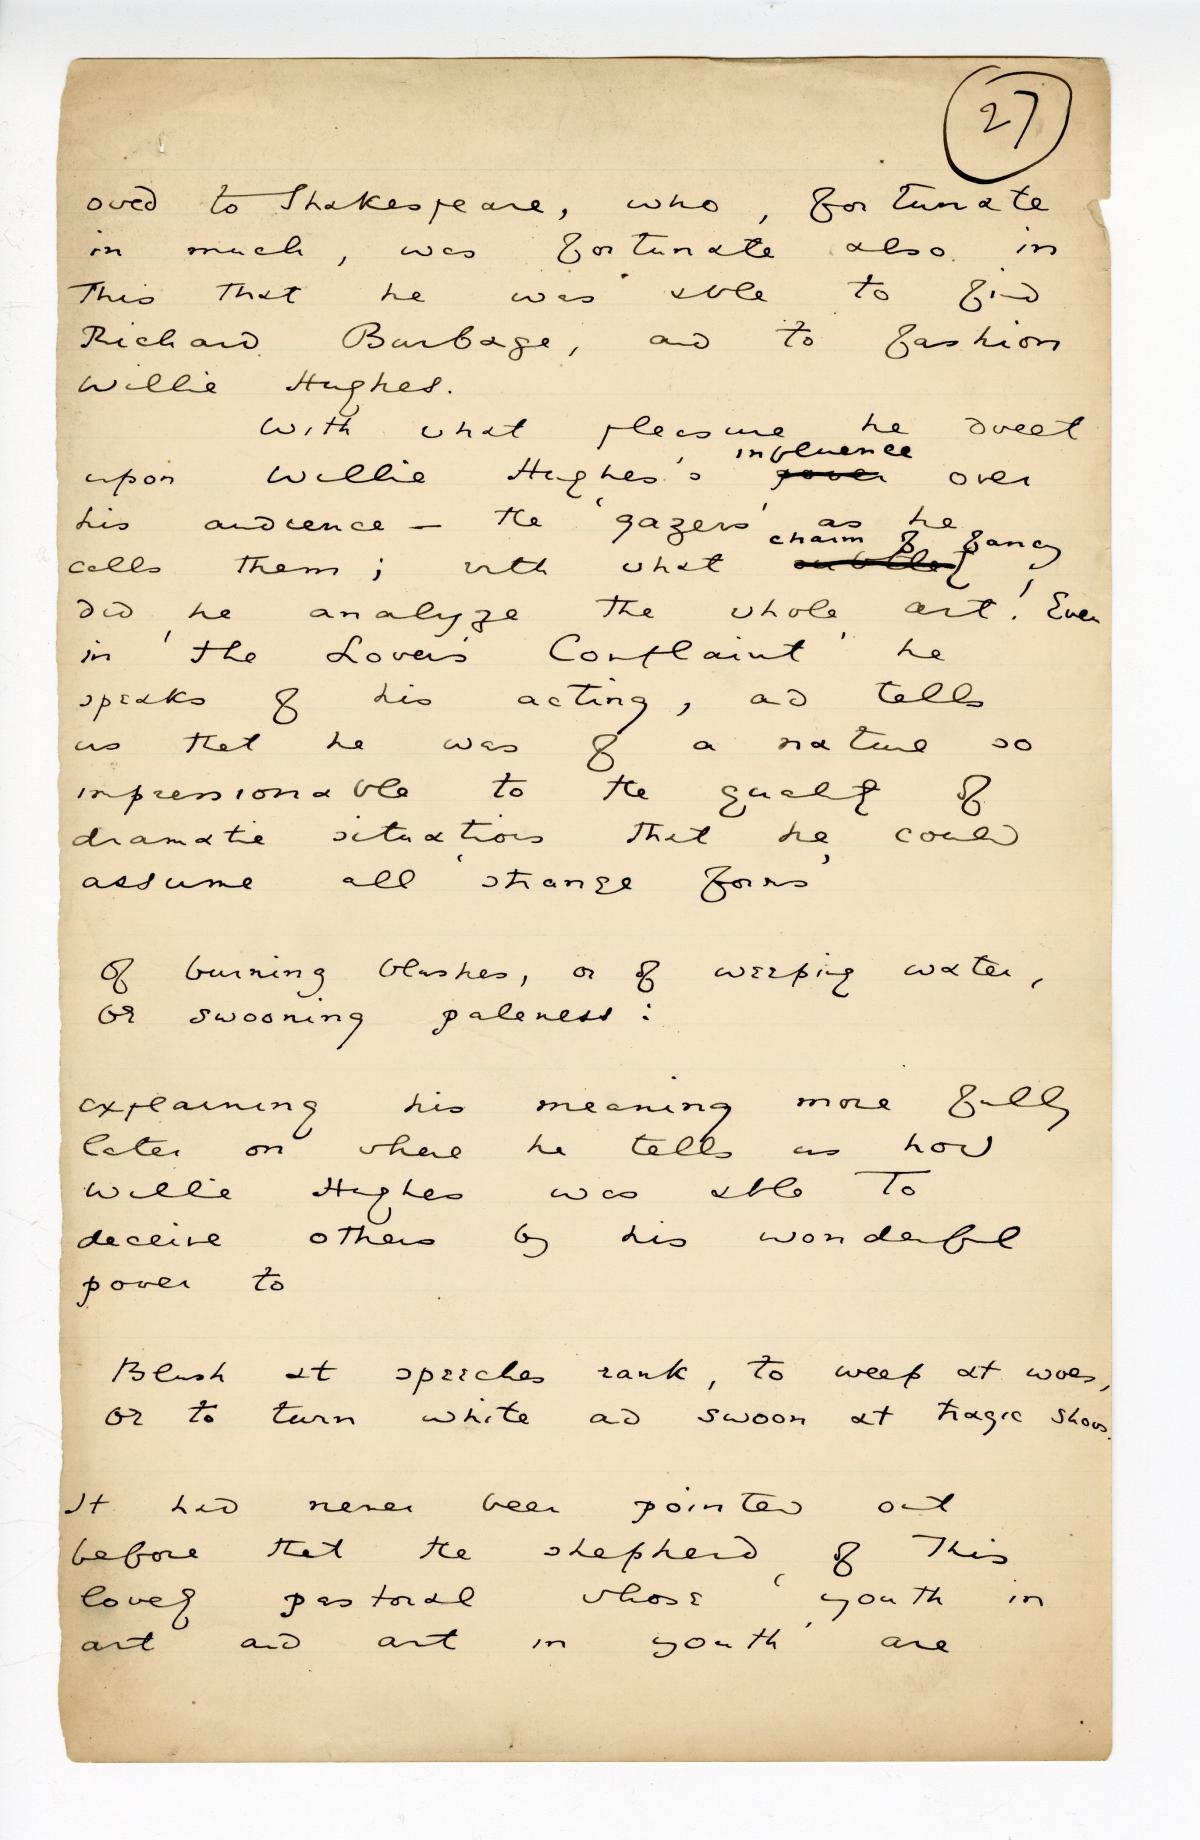 27
owed to Shakespeare, who, fortunate
in much, was fortunate also in
this that he was able to find
Richard Burbage, and to fashion
Willie Hughes.
With what pleasure he dwelt
influence
upon Willie Hughes's power over
his audience — the 'gazers' as he
charm of fancy
calls them; with what subtlety
did he analyze the whole art! Even
in 'The Lover's Complaint' he
speaks of his acting, and tells
us that he was of a nature so
impressionable to the quality of
dramatic situations that he could
assume all 'strange forms'
Of burning blushes, or of weeping water,
Or swooning paleness:
explaining his meaning more fully
later on where he tells us how
Willie Hughes was able to
deceive others by his wonderful
power to
Blush at speeches rank, to weep at woes,
Or to turn white and swoon at tragic shows.
It had never been pointed out
before that the shepherd of this
lovely pastoral whose 'youth in
art and art in youth' are